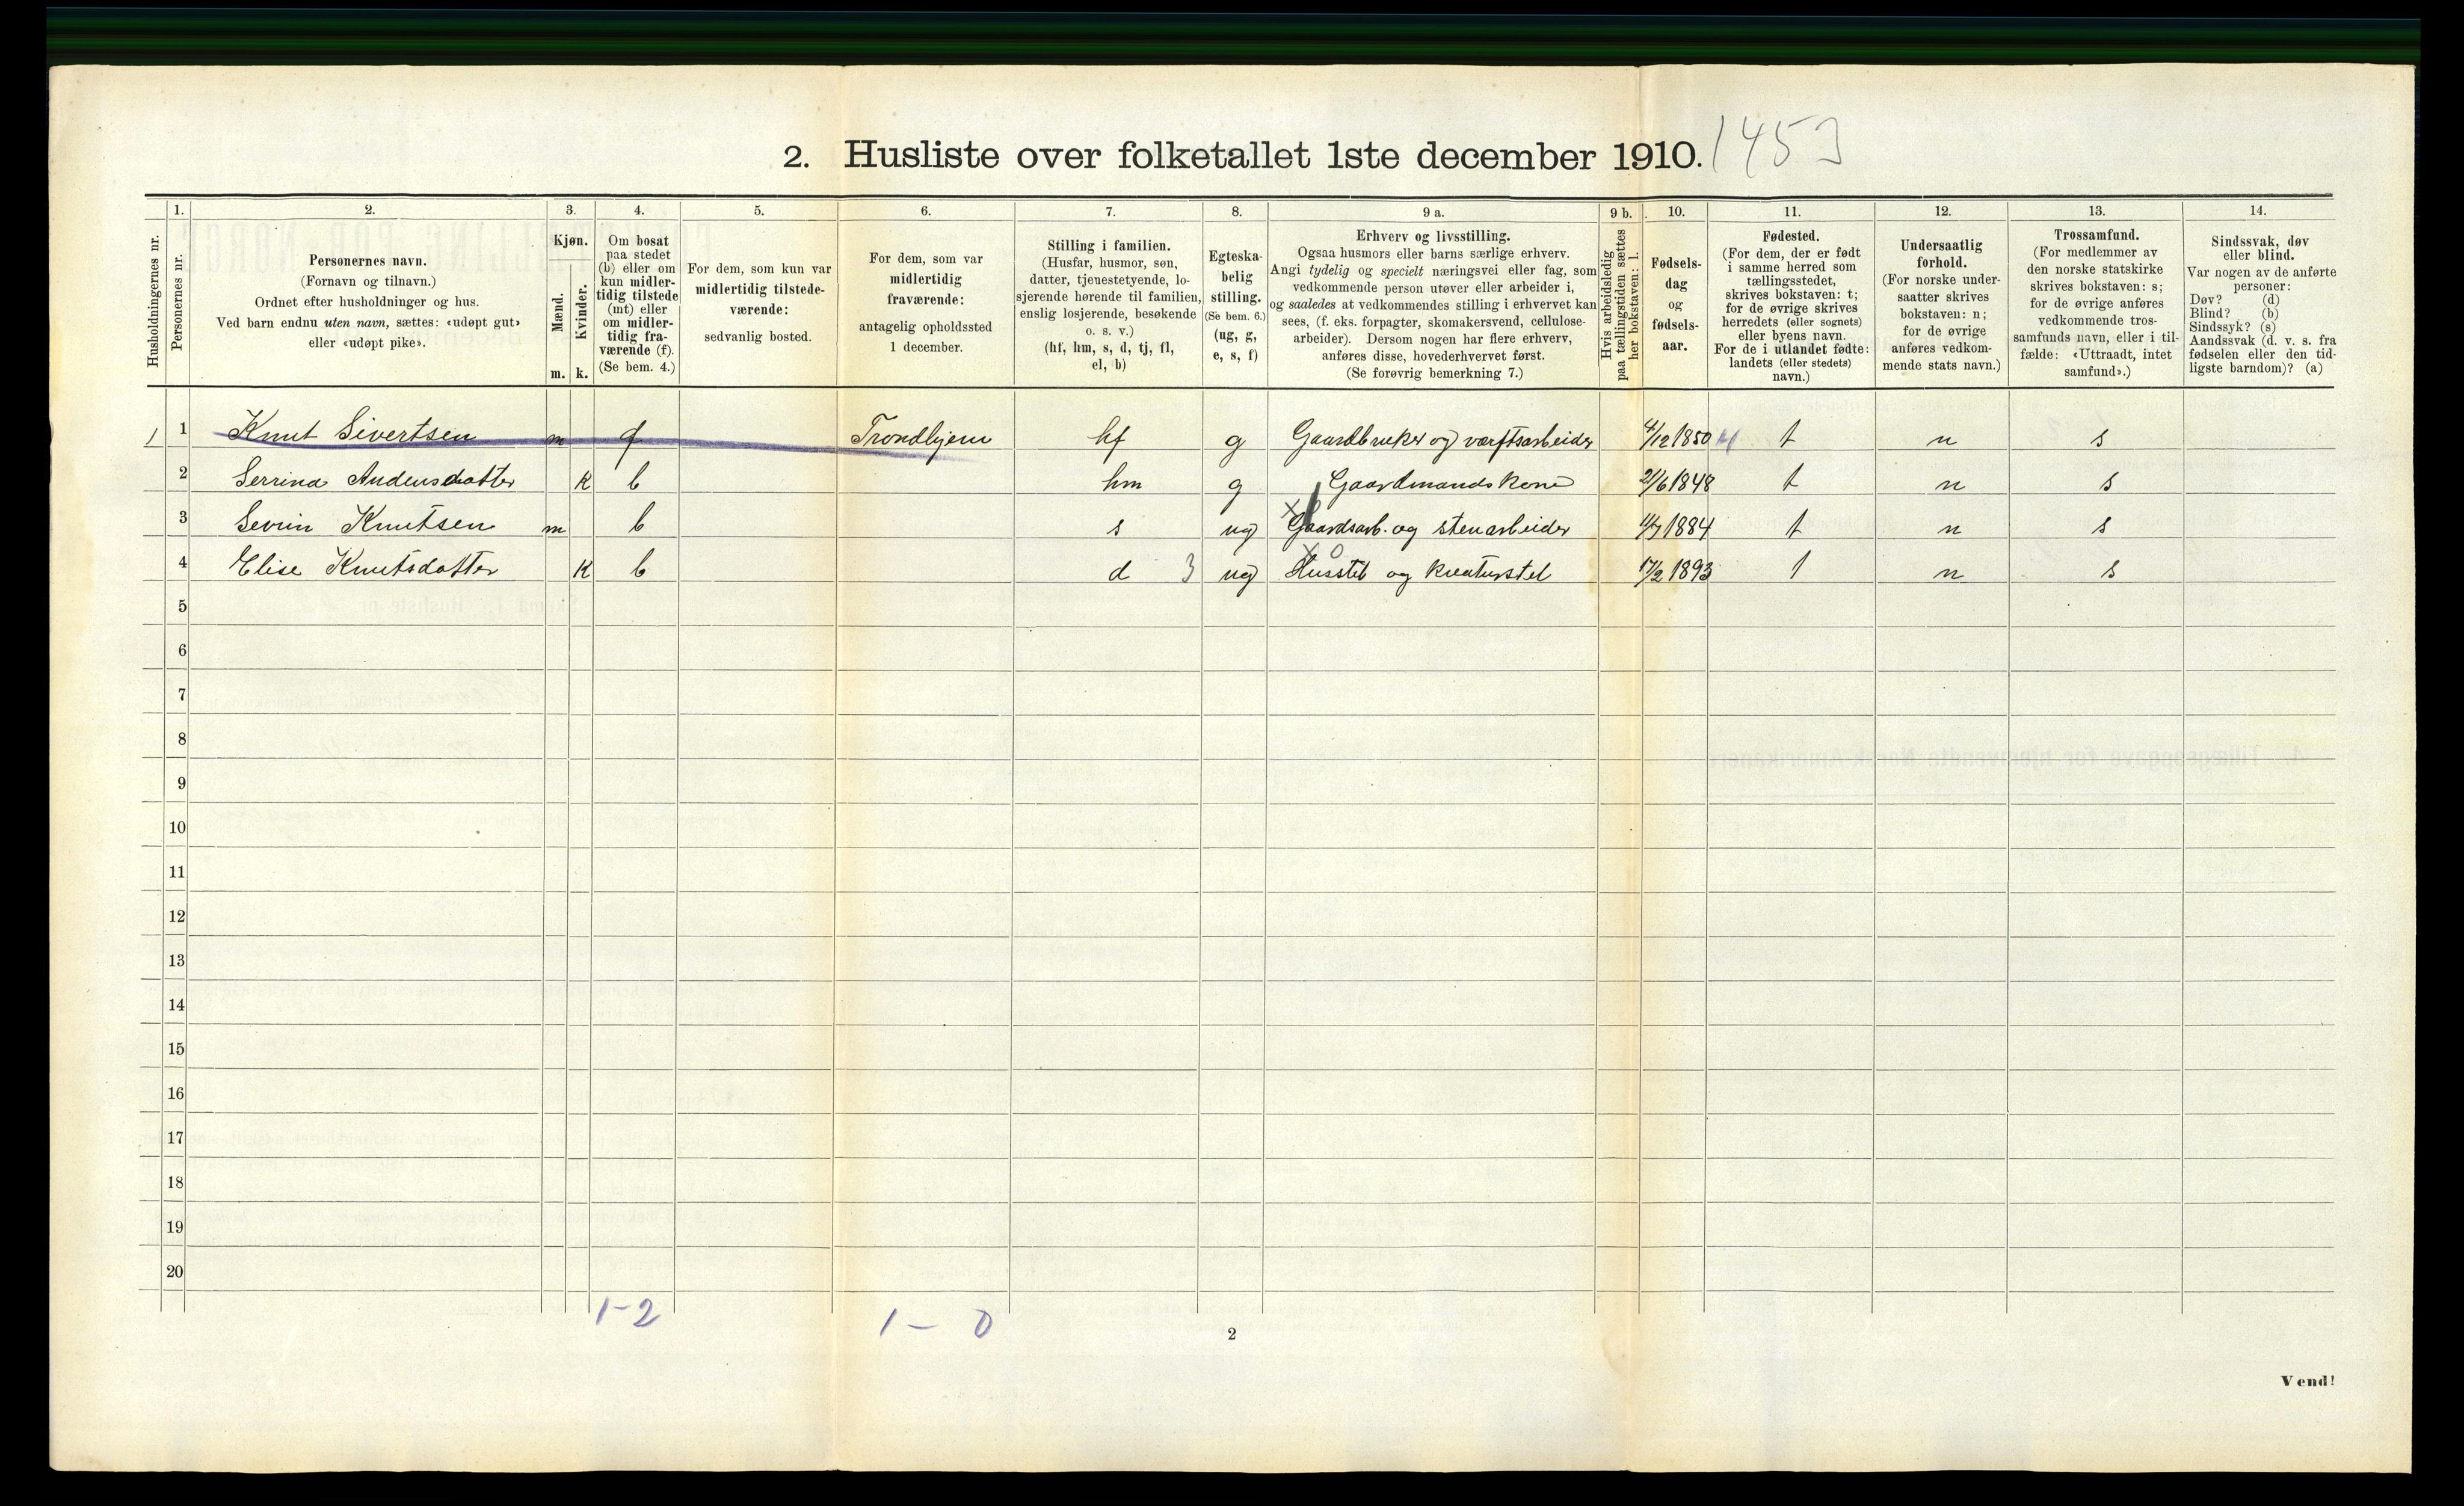 2. Husliste over folketallet 1ste december 1910. 1453
Husholdningernes nr.
1.
Personernes nr.
2.
Personernes navn.
(Fornavn og tilnavn.)
Ordnet efter husholdninger og hus.
Ved barn endnu uten navn, sættes: «udøpt gut»
eller «udøpt pike».
3.
Kjøn.
Mænd.
m.
Kvinder.
k.
4.
Om bosat
paa stedet
(b) eller om
kun midler-
tidig tilstede
(mt) eller
om midler-
tidig fra-
værende (f).
(Se bem. 4.)
5.
For dem, som kun var
midlertidig tilstede-
værende:
sedvanlig bosted.
6.
For dem, som var
midlertidig
fraværende:
antagelig opholdssted
1 december.
7.
Stilling i familien.
(Husfar, husmor, søn,
datter, tjenestetyende, lo-
sjerende hørende til familien,
enslig losjerende, besøkende
o. s. v.)
(hf, hm, s, d, tj, fl,
el, b)
8.
Egteska-
belig
stilling.
(Se bem. 6.)
(ug, g,
e, s, f)
9 a.
Erhverv og livsstilling.
Ogsaa husmors eller barns særlige erhverv.
Angi tydelig og specielt næringsvei eller fag, som
vedkommende person utøver eller arbeider i,
og saaledes at vedkommendes stilling i erhvervet kan
sees, (f. eks. forpagter, skomakersvend, cellulose-
arbeider). Dersom nogen har flere erhverv,
anføres disse, hovederhvervet først.
(Se forøvrig bemerkning 7.)
9 b.
Hvis arbeidsledig
paa tællingstiden sættes
her bokstaven: l.
10.
Fødsels-
dag
og
fødsels-
aar.
11.
Fødested.
(For dem, der er født
i samme herred som
tællingsstedet,
skrives bokstaven: t;
for de øvrige skrives
herredets (eller sognets)
eller byens navn.
For de i utlandet fødte:
landets (eller stedets)
navn.)
12.
Undersaatlig
forhold.
(For norske under-
saatter skrives
bokstaven: n;
for de øvrige
anføres vedkom-
mende stats navn.)
13.
Trossamfund.
(For medlemmer av
den norske statskirke
skrives bokstaven: s;
for de øvrige anføres
vedkommende tros-
samfunds navn, eller i til-
fælde: «Uttraadt, intet
samfund».)
14.
Sindssvak, døv
eller blind.
Var nogen av de anførte
personer:
Døv? (d)
Blind? (b)
Sindssyk? (s)
Aandssvak (d. v. s. fra
fødselen eller den tid-
ligste barndom)? (a)
1 1 Knut Sivertsen m f Trondhjem hf g Gaardbruker og værftsarbeider 4/12 1850 t n s
2 Serrina Andersdatter k b hm g Gaardmandskone 21/6 1848 t n s
3 Sevrin Knutsen m b s ug Gaardsarb. og stenarbeider 1884 t n s
4 Elise Knutsdatter k b d 3 ug Husstel og kreaturstel 17/2 1893 t n s
5
6
7
8
9
10
11
12
13
14
15
16
17
18
19
20
1-2 1-0
2
Vend!